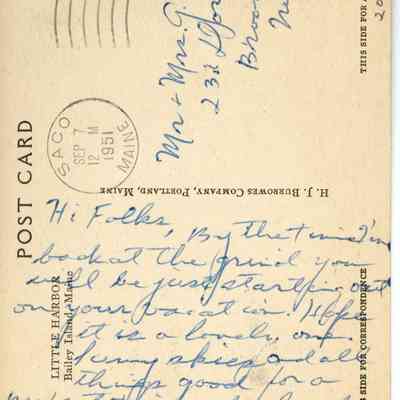 POST CARD
SACO
SEP 7
12 M
1951
MAINE
Mr & Mrs. G.
23rd
Broo
Ne
THIS SIDE FOR A
20
H. J. BURROWES COMPANY, PORTLAND, MAINE
LITTLE HARBOR
Bailey Island, Maine
SIDE FOR CORRESPONDENCE
Hi Folks,
By the time I'm
back at the grind you
will be just starting out
on your vacation. Hope
it is a lovely one.
Sunny skies and all
things good for a